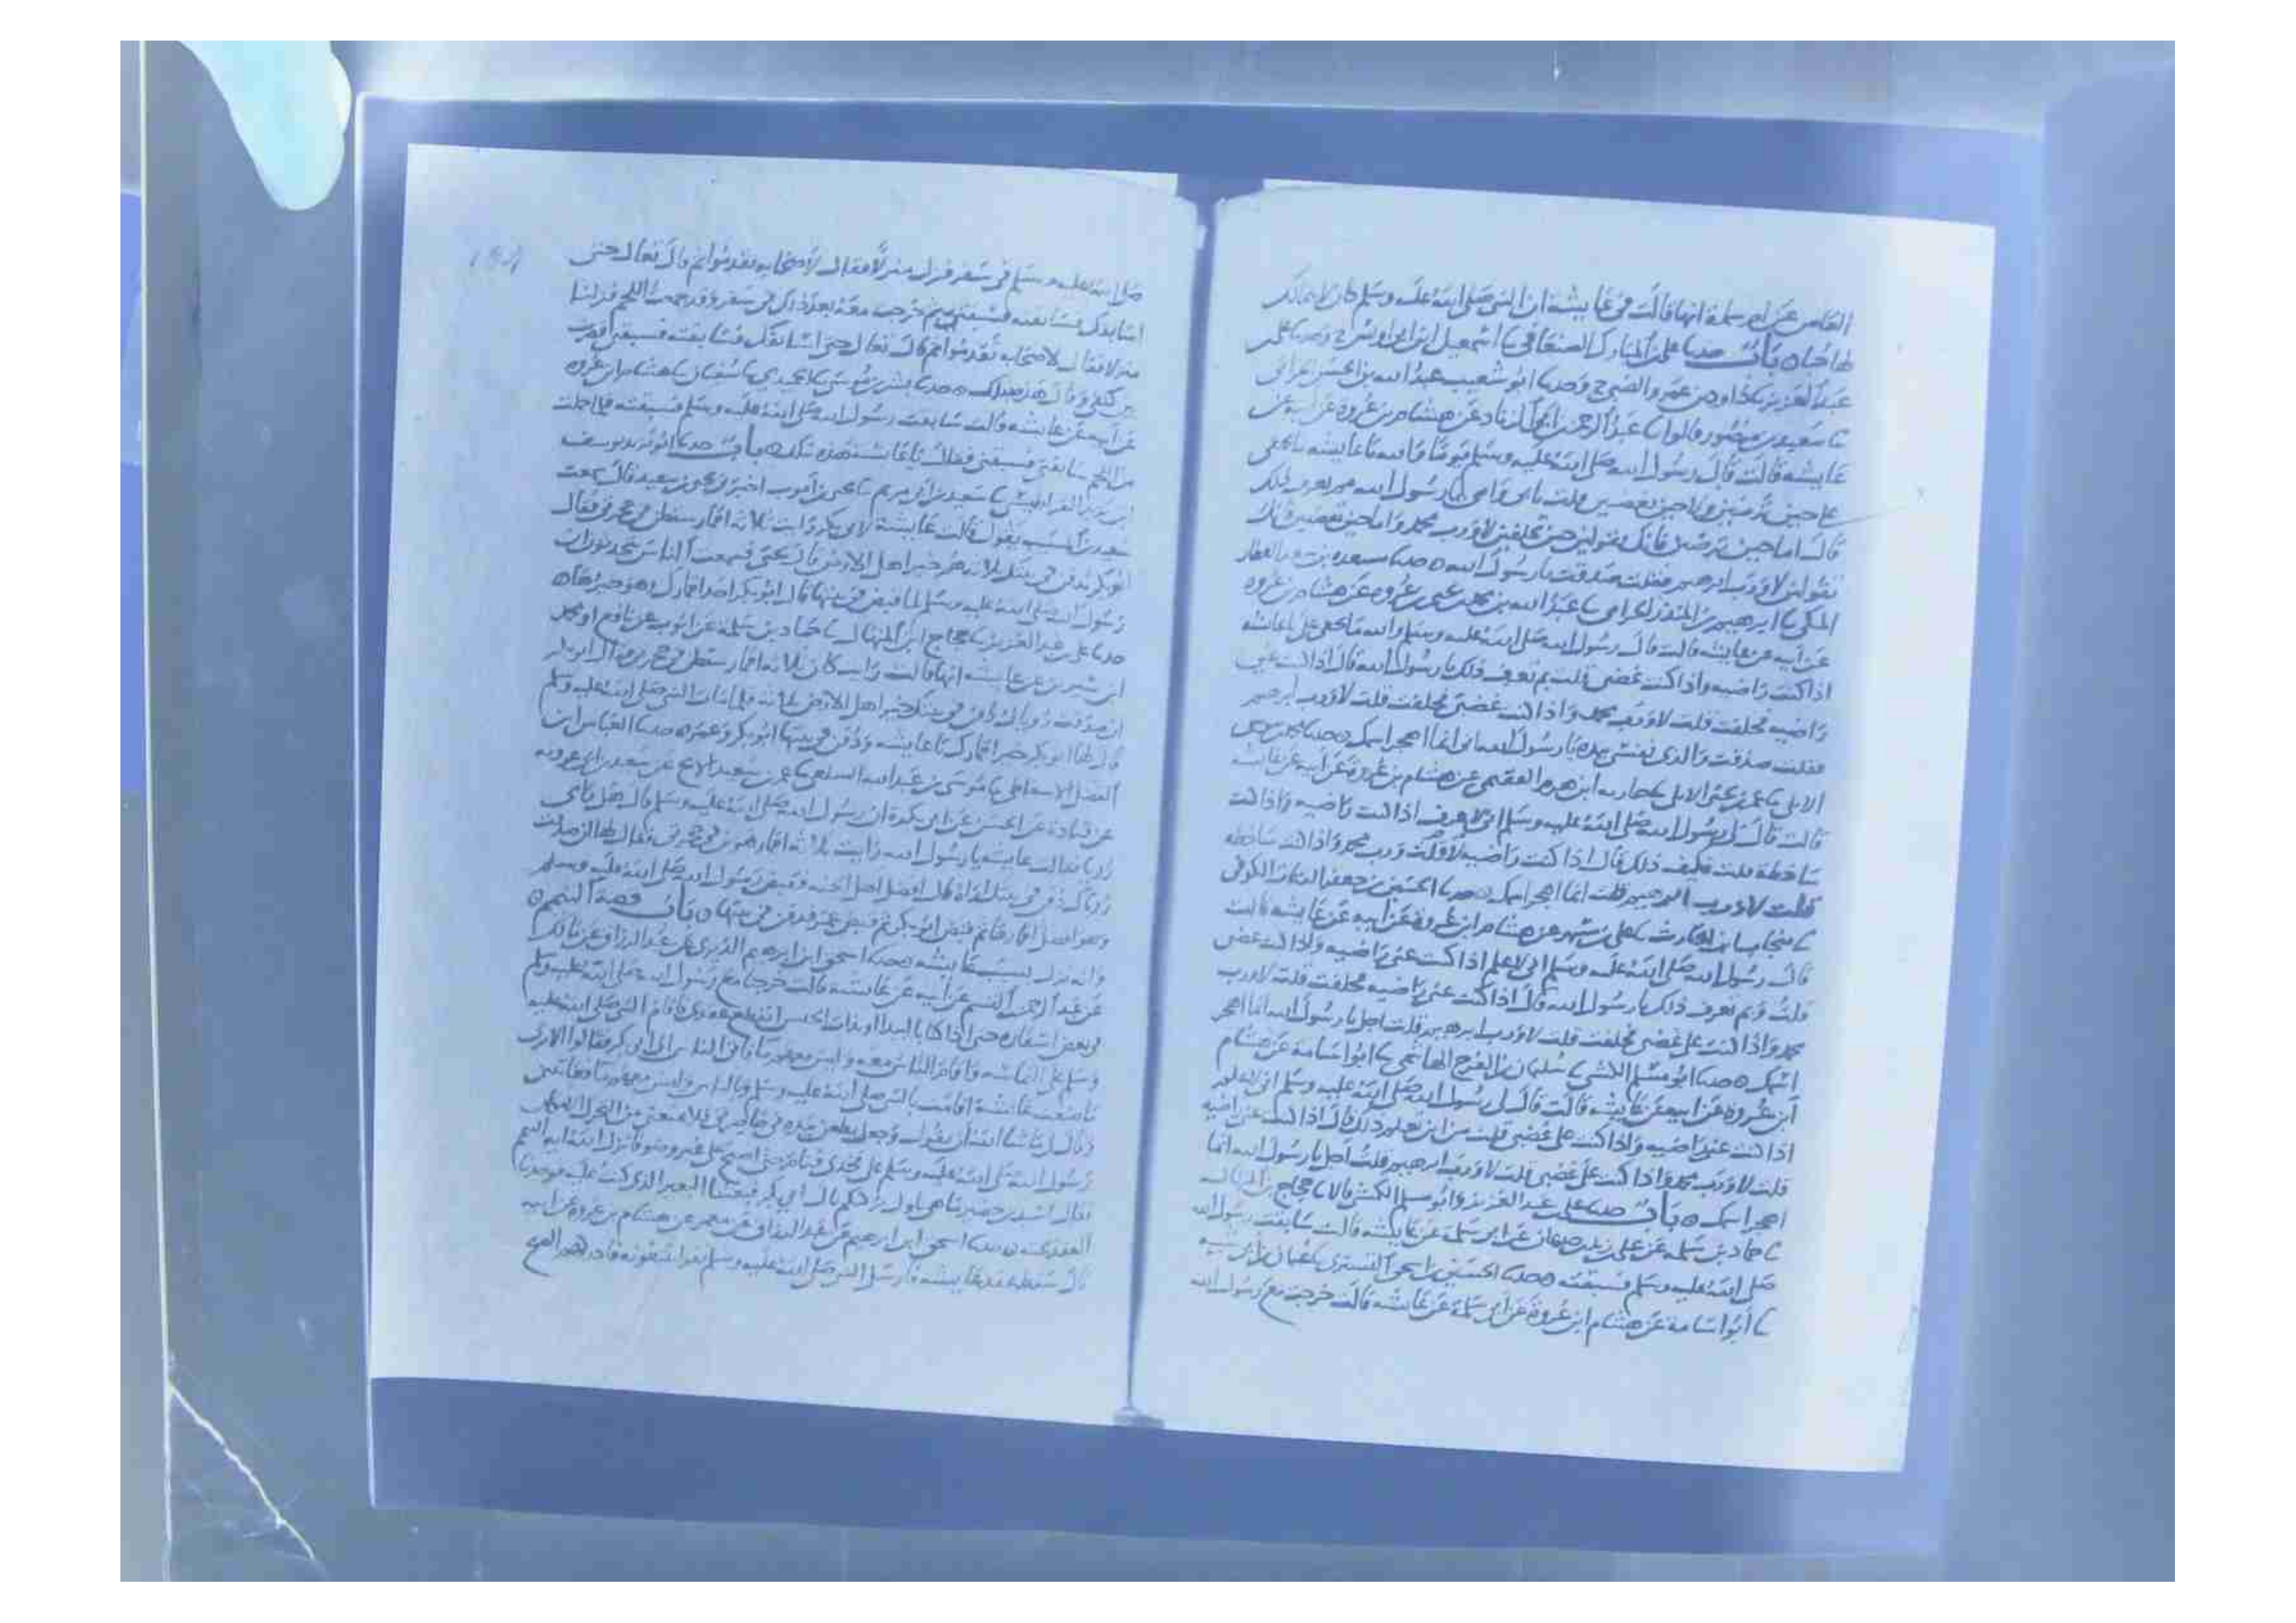 العاص عن ام سلمة انها قالت في عايشة ان النبي صلى الله عليه وسلم كان لا يتمالك
لها حبا ه باب حدثنا علي بن المبارك الصنعاني نا اسمعيل ابن ابي اويس ح وحدثنا علي
عبد العزيز نا داود بن عمرو الضبي ح وحدثنا ابو شعيب عبد الله بن الحسن الحراني
نا سعيد بن منصور قالوا نا عبد الرحمن بن ابي الزناد عن هشام بن عروة عن ابيه عن
عايشه قالت قال رسول الله صلى الله عليه وسلم يوما اما والله يا عايشه ما يخفى
علي حين ترضين ولا حين تغضبين قلت بابي وامي يا رسول الله بم تعرف ذلك
قال اما حين ترضين فانك تقولين حين تحلفين لا ورب محمد واما حين تغضبين فانك
تقولين لا ورب ابرهيم فقلت صدقت يا رسول الله ه حدثنا مسعدة بن سعد العطار
المكي نا ابرهيم بن المنذر الحزامي نا عبد الله بن محمد بن يحيى بن عروة عن هشام بن عروة
عن ابيه عن عايشه قالت قال رسول الله صلى الله عليه وسلم والله ما يخفى علي يا عايشه
اذا كنت راضيه واذا كنت غضبى قلت بم تعرف ذلك يا رسول الله قال اذا كنت عني
راضيه فحلفت قلت لا ورب محمد واذا كنت غضبى فحلفت قلت لا ورب ابرهيم
فقلت صدقت والذي نفسي بيده يا رسول الله اني انما اهجر اسمك ه حدثنا
الابلي نا عمر بن يحيى الابلي نا حارثه ابن هرم الفقيمي عن هشام بن عروة عن ابيه عن عايشه
قالت قال لي رسول الله صلى الله عليه وسلم اني لاعرف اذا كنت راضيه واذا كنت
ساخطة قلت فكيف ذلك قال اذا كنت راضيه قلت لا ورب محمد واذا كنت ساخطه
قلت لا ورب ابرهيم قلت انما اهجر اسمك ه حدثنا الحسين بن جعفر القتات الكوفي
نا منجاب بن الحارث نا علي بن مسهر عن هشام ابن عروة عن ابيه عن عايشه قالت
قال رسول الله صلى الله عليه وسلم اني لاعلم اذا كنت عني راضيه واذا كنت غضبى
قلت وبم تعرف ذلك يا رسول الله قال اذا كنت عني راضيه فحلفت قلت لا ورب
محمد واذا كنت علي غضبى فحلفت قلت لا ورب ابرهيم قلت اجل يا رسول الله انما اهجر
اسمك ه حدثنا ابو مسلم الكشي نا سليمان بن الفرج الهاشمي نا ابو اسامة عن هشام
ابن عروة عن ابيه عن عايشه قالت قال لي رسول الله صلى الله عليه وسلم اني لاعلم
اذا كنت عني راضيه واذا كنت علي غضبى قلت من اين تعلم ذلك قال اذا كنت عني راضيه
قلت لا ورب محمد واذا كنت علي غضبى قلت لا ورب ابرهيم قلت اجل يا رسول الله انما
اهجر اسمك ه باب حدثنا علي بن عبد العزيز وابو مسلم الكشي قالا نا حجاج بن المنهال
نا حماد بن سلمه عن علي بن زيد بن جدعان عن ابي سلمة عن عايشه قالت سابقت رسول الله
صلى الله عليه وسلم فسبقته ه حدثنا الحسين بن اسحق التستري نا عثمان بن ابي شيبه
نا ابو اسامة عن هشام ابن عروة عن ابي سلمة عن عايشه قالت خرجت مع رسول الله
صلى الله عليه وسلم في سفر فنزل منزلا فقال لاصحابه تقدموا ثم قال تعالي حتى
اسابقك فسابقته فسبقته ثم خرجت معه بعد ذلك في سفر وقد حملت اللحم فنزلنا
منزلا فقال لاصحابه تقدموا ثم قال تعالي حتى اسابقك فسابقته فسبقني فضرب
بين كتفي وقال هذه بتلك ه حدثنا بشر بن موسى نا الحميدي نا سفيان نا هشام ابن عروه
عن ابيه عن عايشه قالت سابقت رسول الله صلى الله عليه وسلم فسبقته فلما حملت
من اللحم سابقني فسبقني فقال يا عايشه هذه بتلك ه باب حدثنا ابو يزيد يوسف
ابن يزيد القراطيسي نا سعيد بن ابي مريم نا يحيى بن ايوب اخبرني يحيى بن سعيد قال سمعت
سعيد بن المسيب يقول قالت عايشة لابي بكر رايت ثلاثه اقمار سقطن في حجرتي فقال
ابو بكر يدفن في بيتك ثلاثه هم خير اهل الارض قال يحيى فسمعت الناس يتحدثون ان
رسول الله صلى الله عليه وسلم لما قبض في بيتها قال ابو بكر احد اقمارك وهو خيرها ه
حدثنا علي بن عبد العزيز نا حجاج ابن المنهال نا حماد بن سلمة عن ايوب عن نافع او محمد
ابن سيرين عن عايشه انها قالت رايت كان ثلاثه اقمار سقطن في حجرتي فقال ابو بكر
ان صدقت روياك دفن في بيتك خير اهل الارض ثلاثه فلما مات النبي صلى الله عليه وسلم
قال لها ابو بكر خير اقمارك يا عايشه ودفن في بيتها ابو بكر وعمر ه حدثنا العباس ابن
الفضل الاسفاطي نا موسى بن عبد الله السلمي نا عمر بن سعيد الابح عن سعيد بن ابي عروبه
عن قتادة عن الحسن عن ابي بكرة ان رسول الله صلى الله عليه وسلم قال
رويا فقالت عايشه يا رسول الله رايت ثلاثه اقمار هوين في حجرتي فقال لها ان صدقت
روياك دفن في بيتك ثلاثه افضل اهل الجنه فقبض رسول الله صلى الله عليه وسلم
وهو افضل اقمارها ثم قبض ابو بكر ثم قبض عمر فدفن في بيتها ه باب قصة التيمم ه
وانه نزل بسبب عايشه ه حدثنا اسحق ابن ابرهيم الدبري عن عبد الرزاق عن مالك
عن عبد الرحمن بن القسم عن ابيه عن عايشه قالت خرجنا مع رسول الله صلى الله عليه وسلم
في بعض اسفاره حتى اذا كنا بالبيدا او بذات الجيش انقطع عقدي فاقام النبي صلى الله عليه
وسلم على التماسه واقام الناس معه وليس معهم ما فاتى الناس الى ابي بكر فقالوا الا ترى
ما صنعت عايشة اقامت بالنبي صلى الله عليه وسلم وبالناس وليس معهم ما فعاتبني
وقال لي ما شا الله ان يقول وجعل يطعن بيده في خاصرتي فلا منعني من التحرك الا مكان
رسول الله صلى الله عليه وسلم على فخذي فنام حتى اصبح على غير وضو فانزل الله ايه التيمم
فقال اسيد بن حضير ما هي باول بركتكم يال ابي بكر فبعثنا البعير الذي كنت عليه فوجدنا
العقد تحته ه حدثنا اسحق ابن ابرهيم عن عبد الرزاق عن معمر عن هشام بن عروة عن ابيه
قال سقط عقد عايشه فارسل النبي صلى الله عليه وسلم نفرا يبتغونه فادركهم الصبح